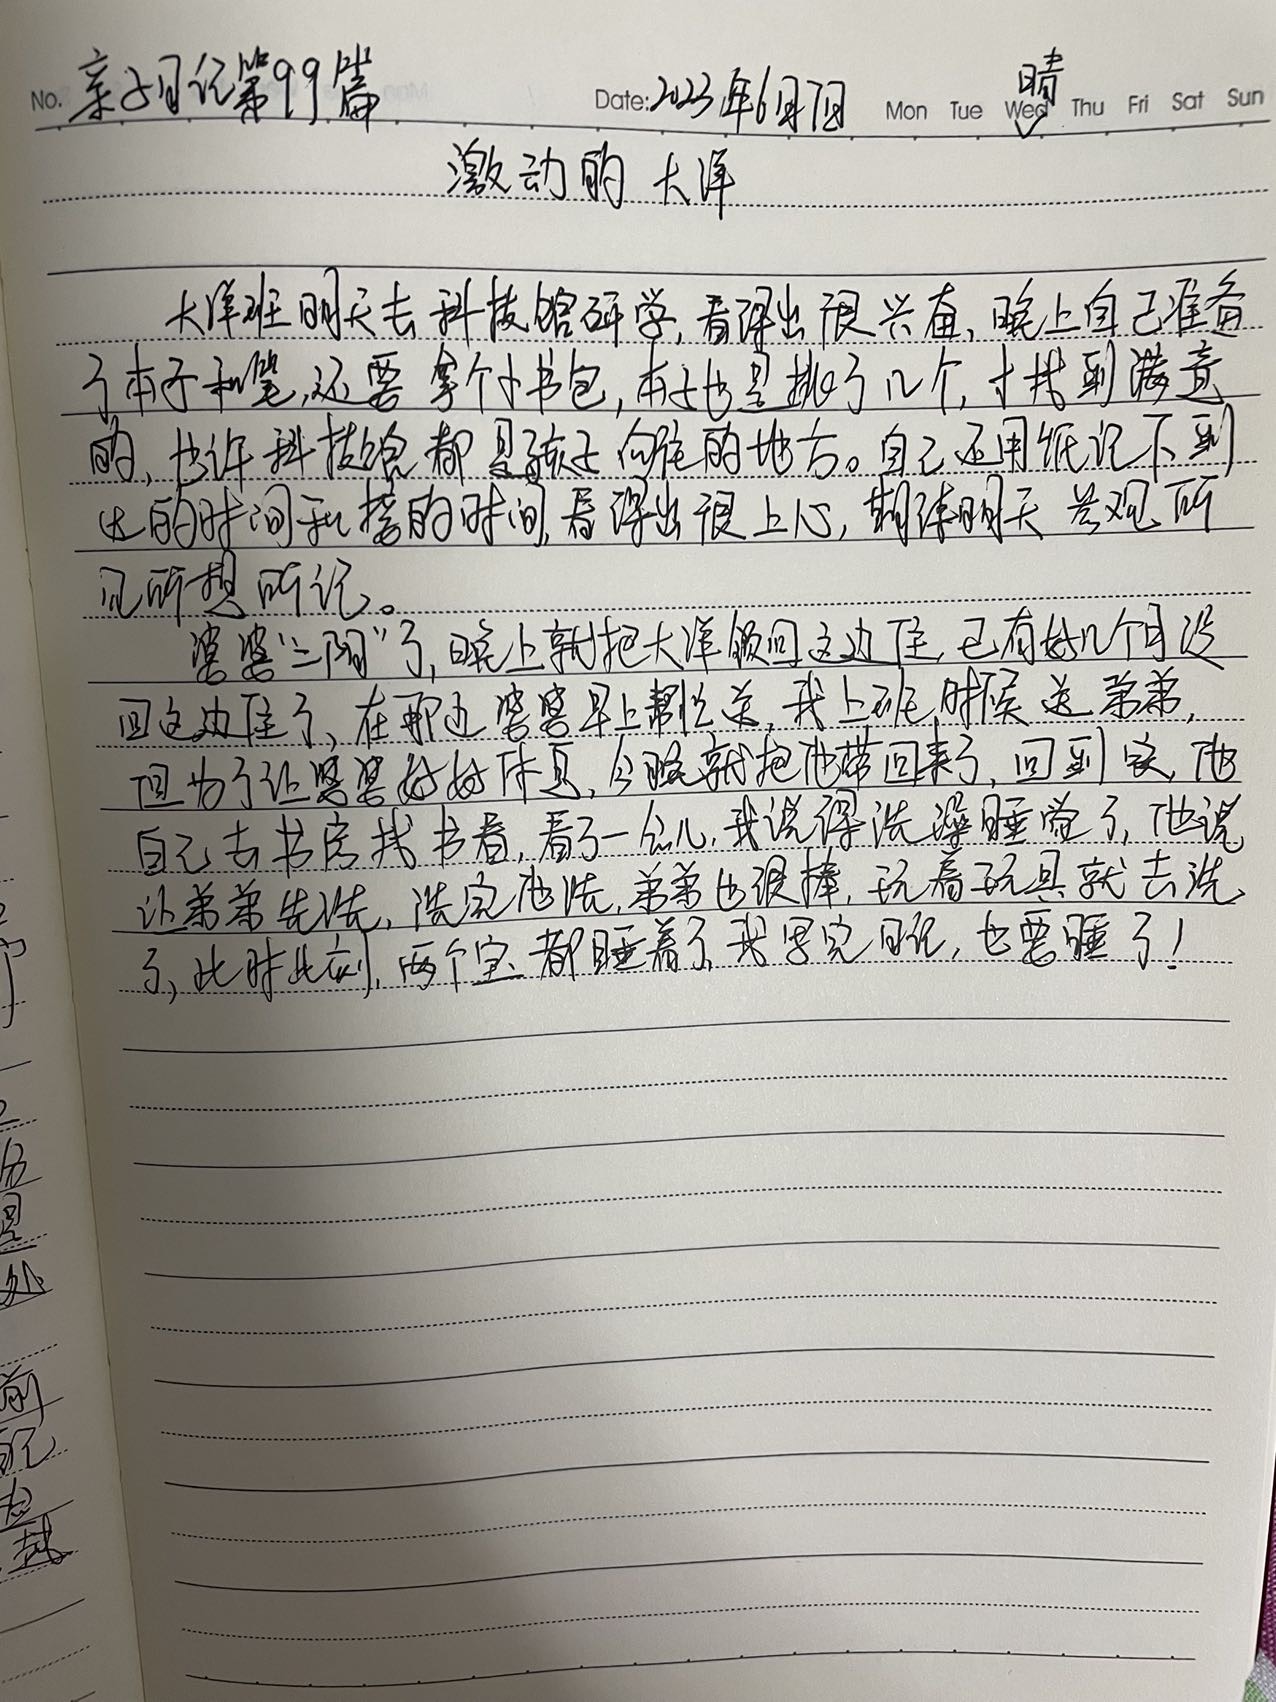 No. 亲子日记第99篇 Date: 2023年6月7日 晴 Mon Tue Wed Thu Fri Sat Sun
激动的大洋
大洋班明天去科技馆研学,看得出很兴奋,晚上自己准备
了本子和笔,还要拿个小书包,本子也是挑了几个,才找到满意
的,也许科技馆都是孩子向往的地方。自己还用纸记下到
达的时间和接的时间,看得出很上心,期待明天参观所
见所想所记。
婆婆“二阳”了,晚上就把大洋领回这边住,已有好几个月没
回这边住了,在那边婆婆早上帮忙送,我上班时候送弟弟,
但为了让婆婆好好休息,今晚就把他带回来了,回到家,他
自己去书房找书看,看了一会儿,我说得洗澡睡觉了,他说
让弟弟先洗,洗完他洗,弟弟也很棒,玩着玩具就去洗
了,此时此刻,两个宝都睡着了,我写完日记,也要睡了!